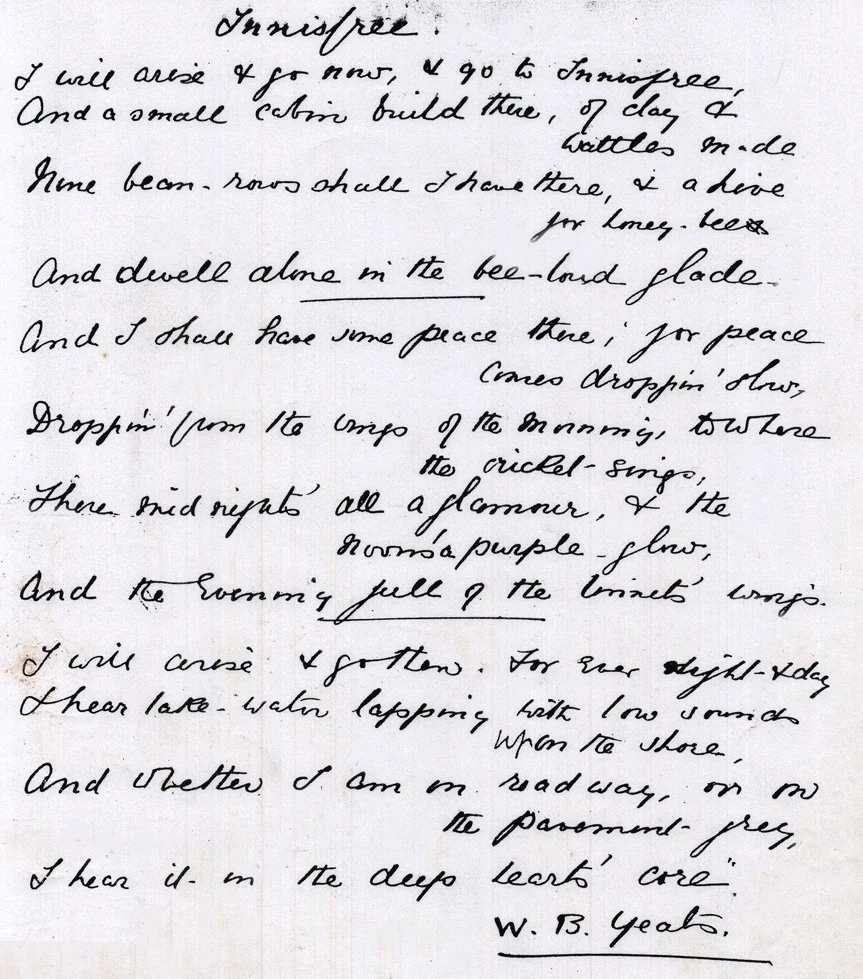 Innisfree.
I will arise & go now, & go to Innisfree,
And a small cabin build there, of clay &
wattles made
Nine bean-rows shall I have there, & a hive
for honey-bees
And dwell alone in the bee-loud glade.
And I shall have some peace there; for peace
comes droppin' slow,
Droppin' from the wings of the Morning, to where
the cricket sings,
There midnights' all a glamour, & the
noons' a purple glow,
And the Evening full of the linnets' wings.
I will arise & go then. For ever night & day
I hear lake-water lapping with low sounds
upon the shore,
And whether I am in roadway, or on
the pavement grey,
I hear it in the deep hearts' core".
W. B. Yeats.